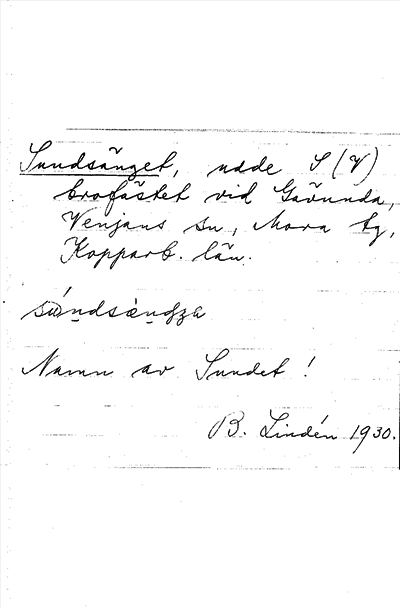 Sundsänget, udde S (V)
brofästet vid Gävunda,
Venjans sn, Mora tg,
Kopparb. län.
Namn av Sundet !
B. Lindén 1930.